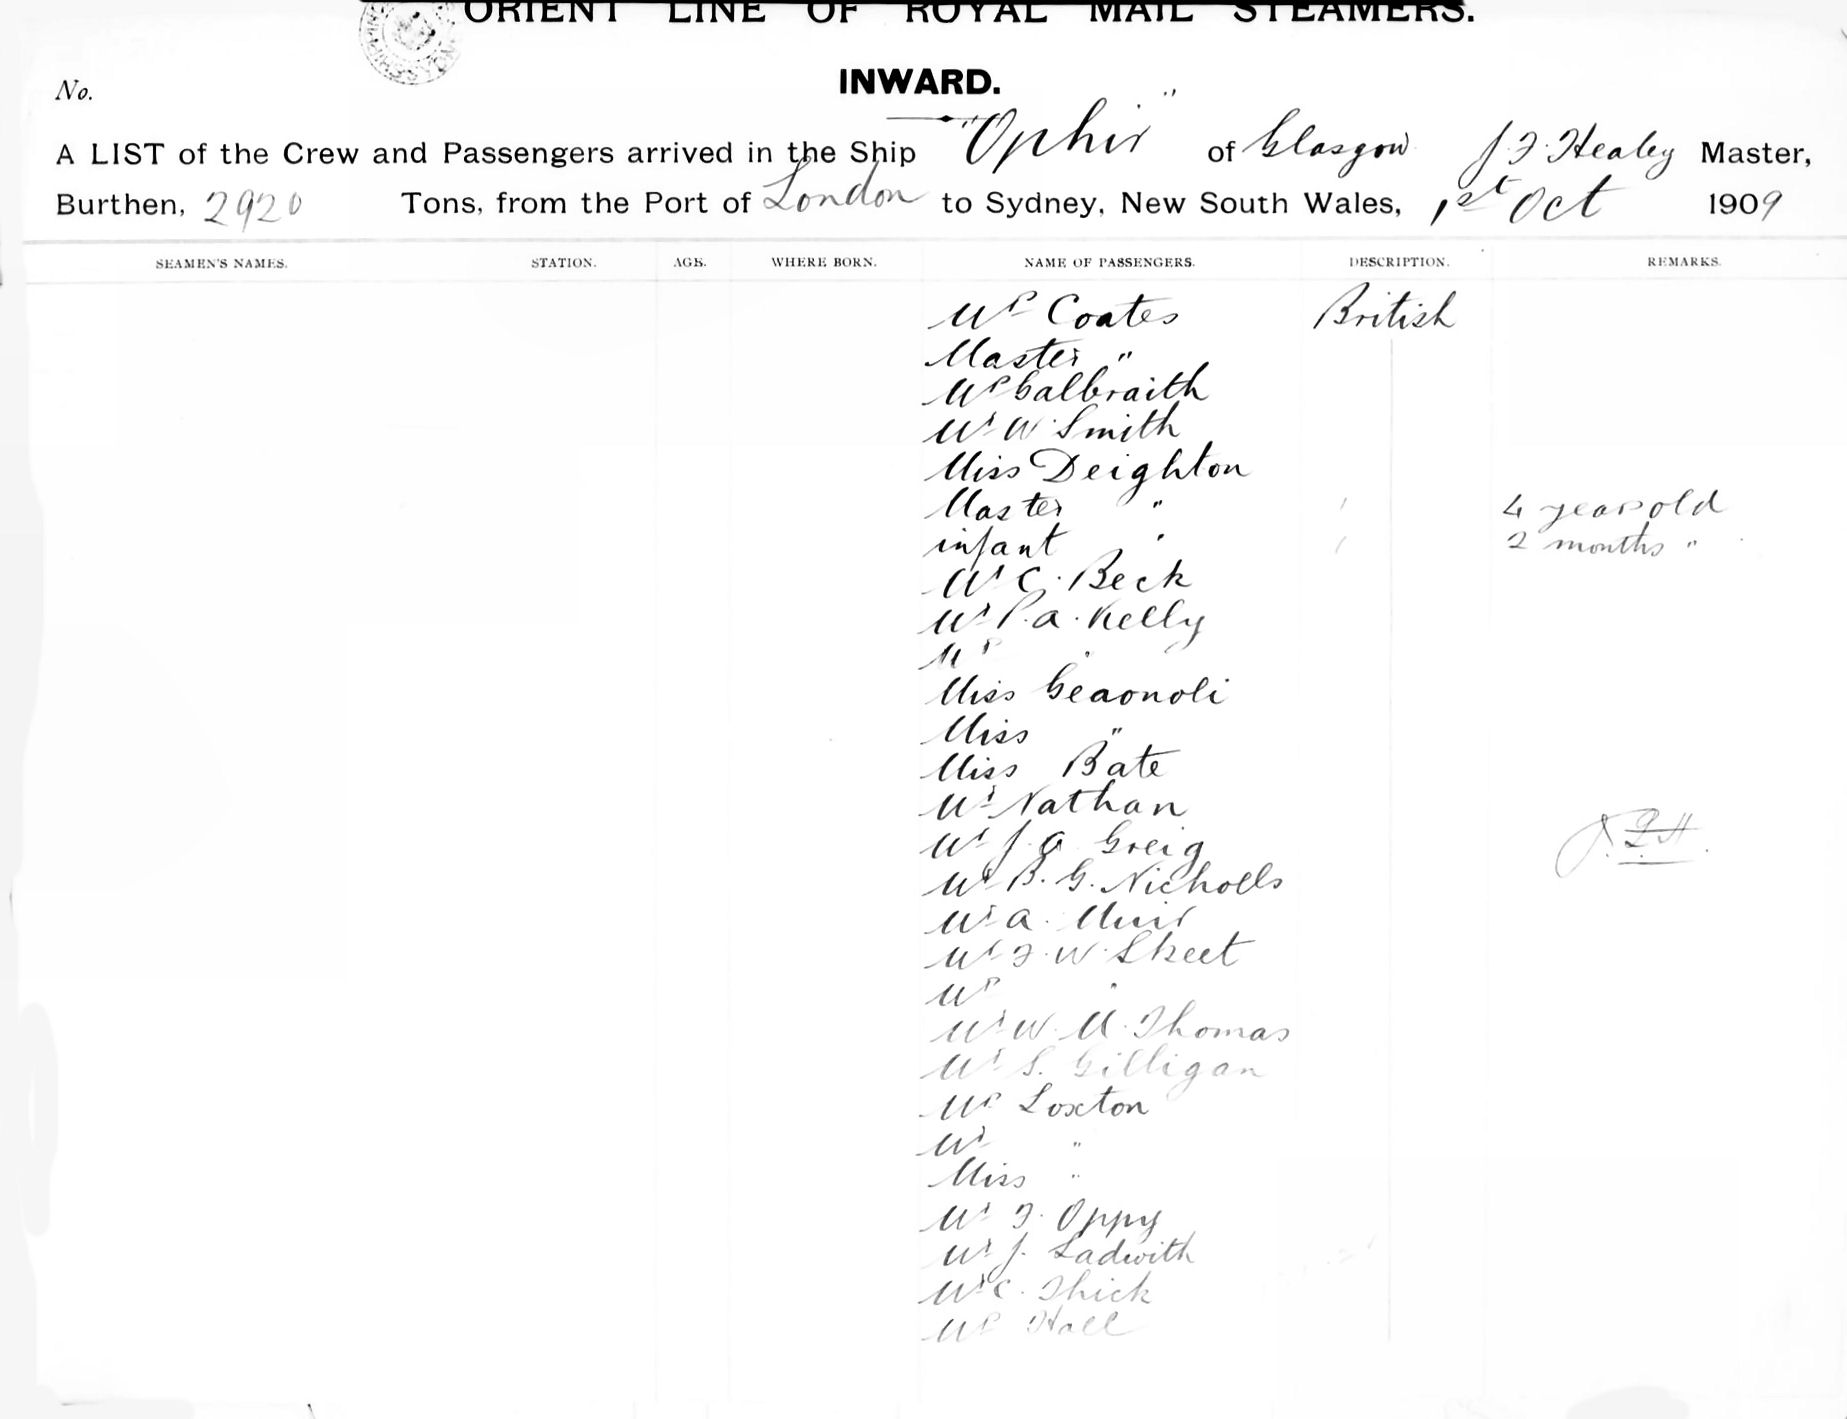 ORIENT LINE OF ROYAL MAIL STEAMERS.
INWARD.
No.
A LIST of the Crew and Passengers arrived in the Ship "Ophir" of Glasgow J. F. Healey Master,
Burthen, 2920 Tons, from the Port of London to Sydney, New South Wales, 1st Oct 1909
SEAMEN'S NAMES. STATION. AGE. WHERE BORN. NAME OF PASSENGERS. DESCRIPTION. REMARKS.
Mrs Coates British
Master "
Mrs Galbraith
Mr W. Smith
Miss Deighton
Master " 4 years old
infant " 2 months "
Mr C. Beck
Mr P. A. Kelly
Mrs "
Miss Geaonoli
Miss "
Miss Bate
Mr Nathan
Mr J. A. Greig
Mr B. G. Nicholls
Mr A. Muir
Mr F. W. Skeet
Mrs "
Mr W. M. Thomas
Mr S. Gilligan
Mrs Loxton
Mr "
Miss "
Mr F. Oppy
Mr J. Ladwith
Mr C. Thick
Mrs Hall